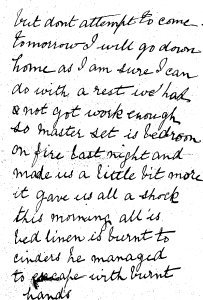 but dont attempt to come
tomorrow I will go down
home as I am sure I can
do with a rest we had
& not got work enough
so master set is bedroom
on fire last night and
made us a little bit more
it gave us all a shock
this morning all is
bed linen is burnt to
cinders he managed
to escape with burnt
hands